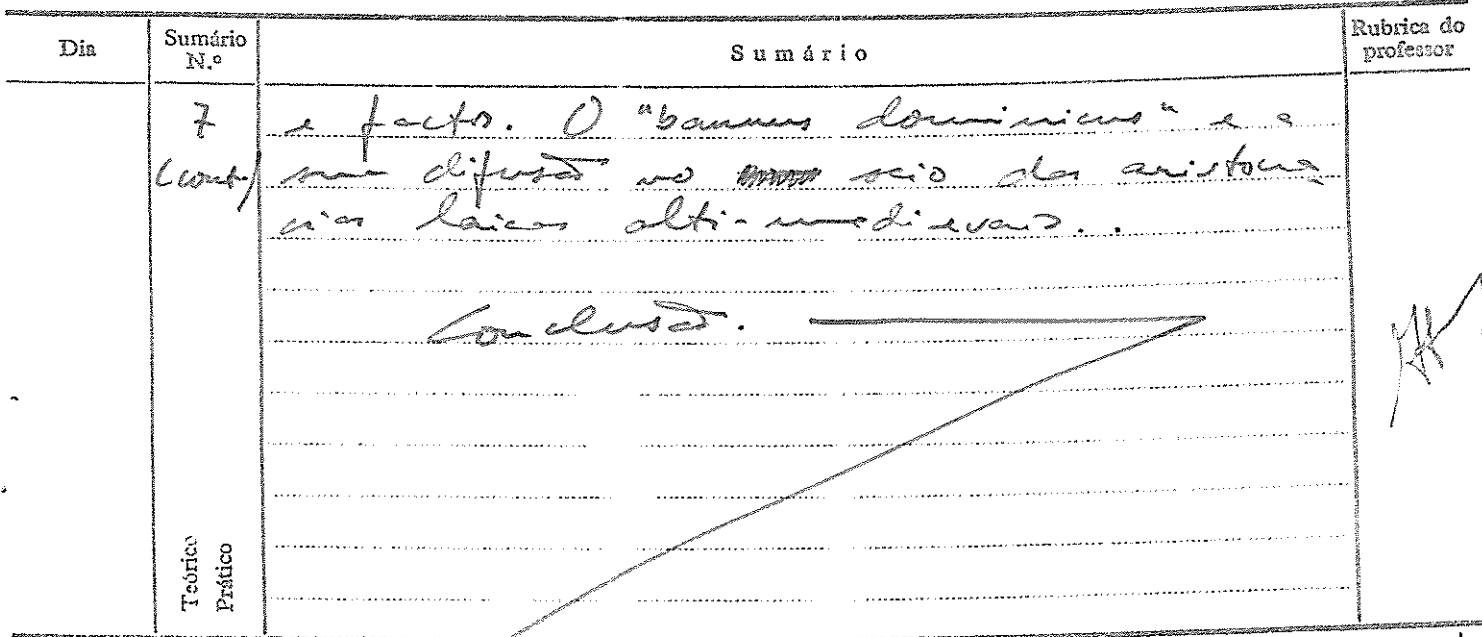 Dia
Sumário
N.º
Sumário
Rubrica do
professor
7
(cont.)
e factos. O "bannus dominicus" e a
sua difusão no seio das aristocra
cias laicas alti-medievais..
Conclusão.
Teórico
Prático